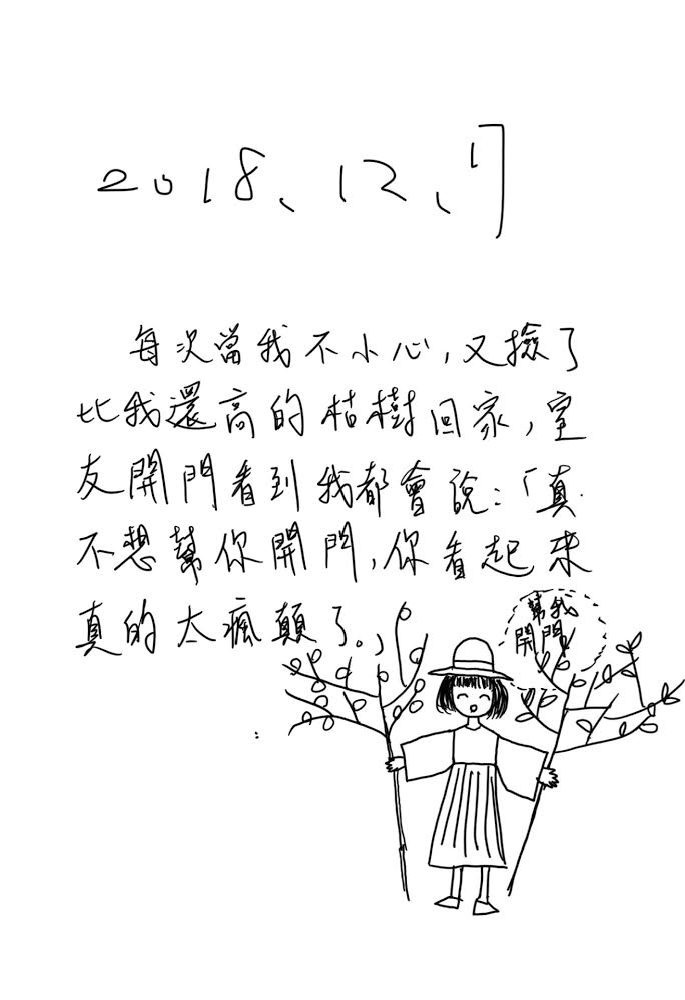 2018、12、月
每次當我不小心,又撿了
比我還高的枯樹回家,室
友開門看到我都會說:「真
不想幫你開門,你看起來
真的太瘋顛了。」
幫我
開門